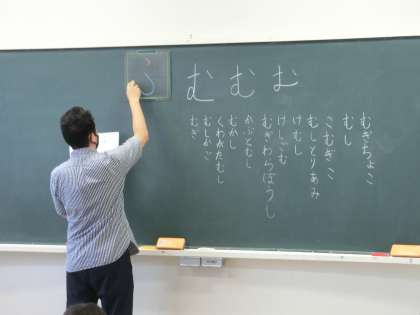 む む む
むぎちょこ
むし
こむぎこ
むしとりあみ
けむし
けしごむ
むぎわらぼうし
かぶとむし
むかし
くわがたむし
むしかご
むぎ